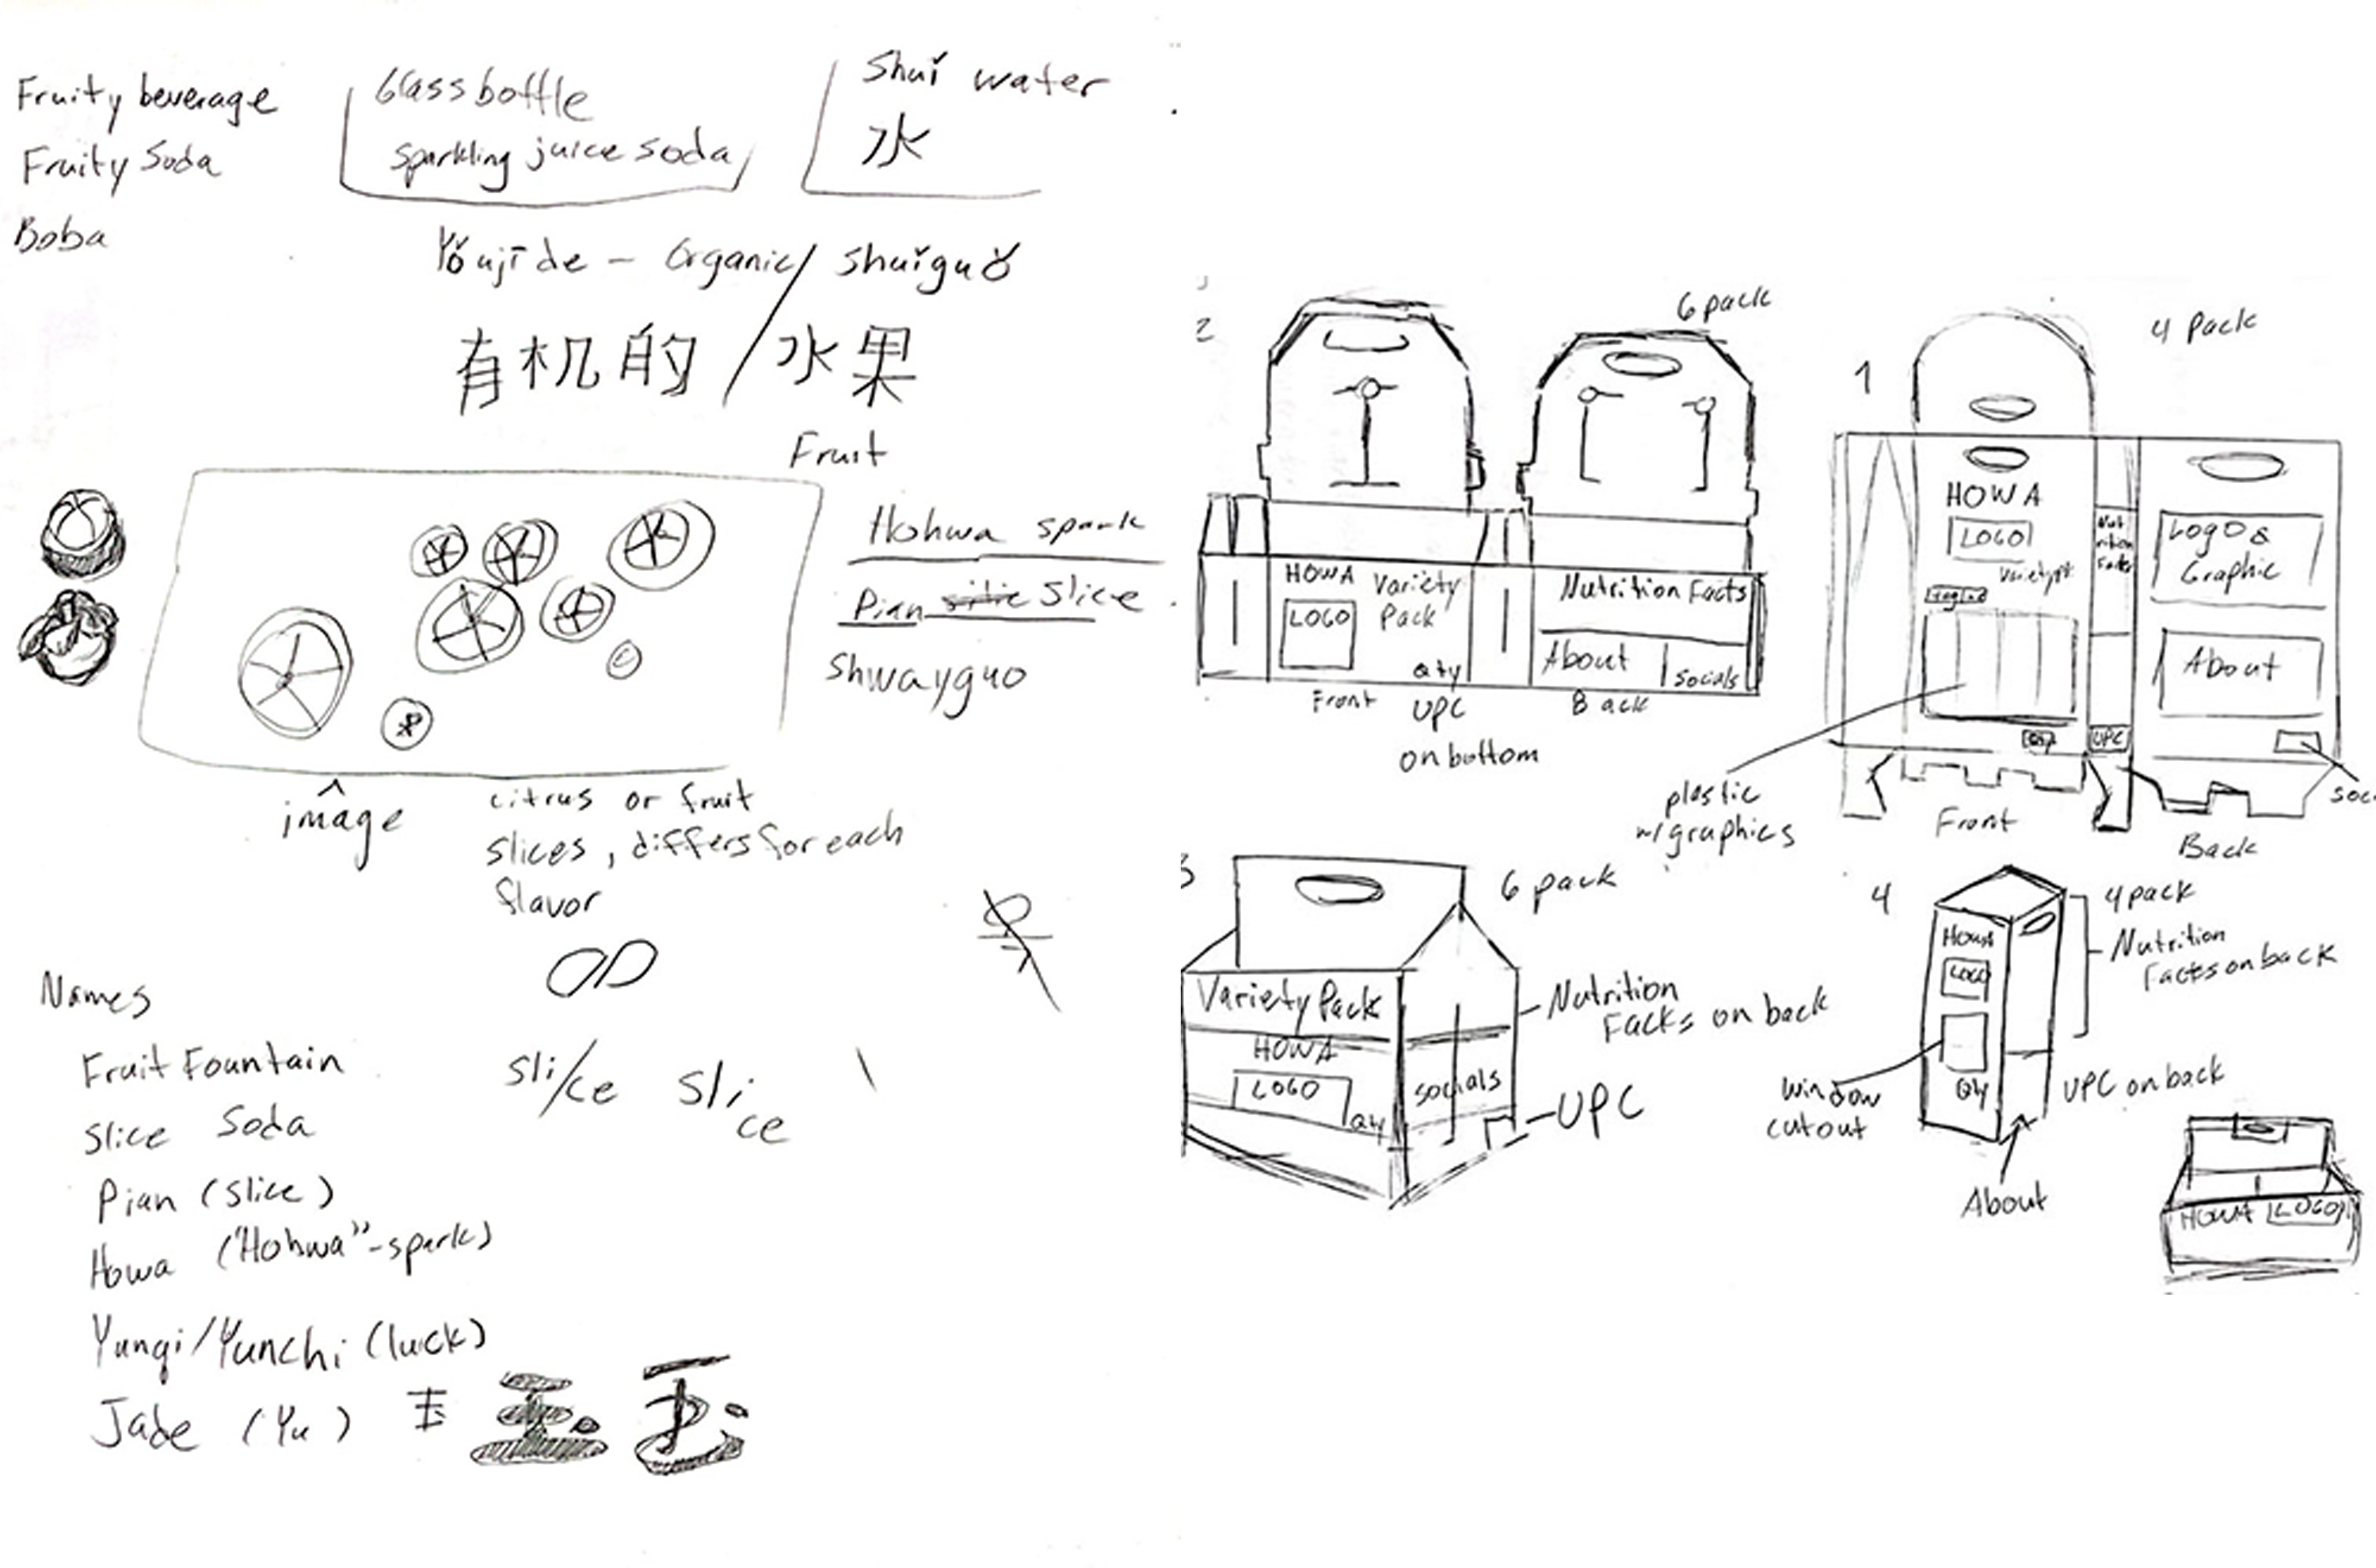 Fruity beverage
Fruity Soda
Boba
Glass bottle
sparkling juice soda
Shuǐ water
水
Yǒujī de - Organic / shuǐguǒ
有机的 / 水果
Fruit
Hohwa spark
Pian slice
Shwayguo
^
image
citrus or fruit
slices, differs for each
flavor
Names
Fruit Fountain
Slice Soda
Pian (slice)
Howa ("Hohwa"-spark)
Yunqi/Yunchi (luck)
Jade (Yu)
玉
sli/ce
sli
ce
2
6 pack
HOWA
LOGO
Variety
Pack
Qty
Nutrition Facts
About
socials
Front
UPC
on bottom
Back
1
4 Pack
HOWA
LOGO
Nutrition
Facts
UPC
Logo &
Graphic
About
plastic
w/graphics
Front
Back
soc
3
6 pack
Variety Pack
HOWA
LOGO
Qty
socials
Nutrition
Facts on back
UPC
4
4 pack
Howa
LOGO
Qty
Nutrition
Facts on back
window
cutout
UPC on back
About
HOWA LOGO